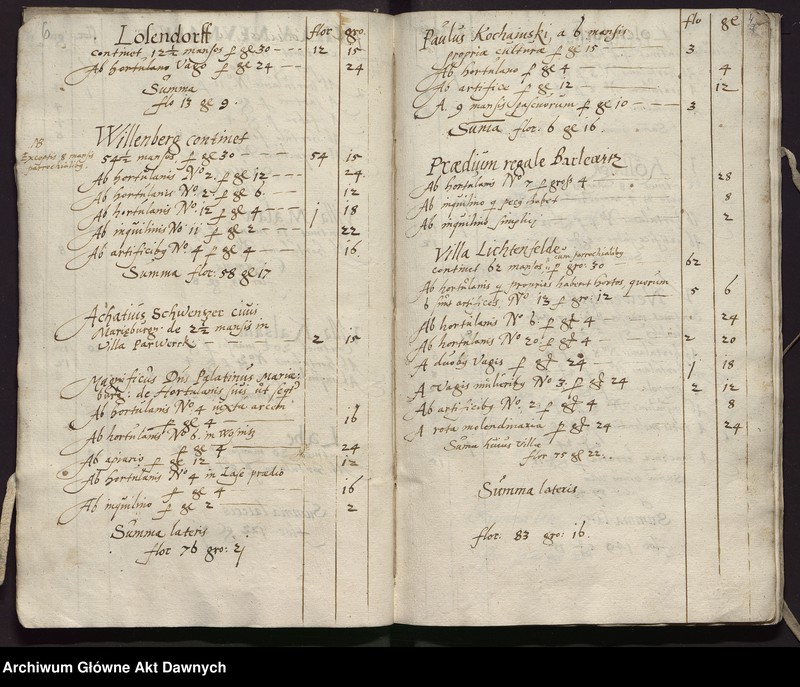 6
flor gro.
Losendorff
continet 12½ mansos p gr 30 - - - 12 15
Ab hortulano Vago p gr 24 - - - 24
Summa
flo 13 gr 9.
Willenberg continet
NB
Exceptis 8 mansis
parrochialibus.
54½ mansos. p gr 30 - - - 54 15
Ab hortulanis No 2. p gr 12 - - - 24
Ab hortulanis No 2 p gr 6 - - - 12
Ab hortulanis No 12 p gr 4 - - - 1 18
Ab inquilinis No 11 p gr 2 - - - 22
Ab artificibus No 4 p gr 4 - - - 16
Summa flor: 58 gr 17
Achatius Schwentzer civis
Marieburgen: de 2½ mansis in
Villa Parwerck - - - 2 15
Magnificus Dns Palatinus Marie:
burg: de Hortulanis suis ut seqr
Ab hortulanis No 4 iuxta arcem
p gr 4 - - - 16
Ab hortulanis No 6. in
p gr 4 - - - 24
Ab apiario p gr 12 - - - 12
Ab Hortulanis No 4 in Lase prædio
p gr 4 - - - 16
Ab inquilino p gr 2 - - - 2
Summa lateris
flor 76 gro: 21
flo gr
Paulus Kochański a 6 mansis
propriæ culturæ p gr 15 - - - 3
Ab hortulano p gr 4 4
Ab artifice p gr 12 - - - 12
A 9 mansis pascuorum p gr 10 - - - 3
Suma flor: 6 gr 16.
Prædium regale
Ab hortulanis No 7 p gross 4 28
Ab inquilino habet 8
Ab inquilino simplici 2
Villa Lichtenfelde
cum parrochialibus
continet 62 mansos p gro: 30 62
Ab hortulanis q proprios habent hortos, quorum
6 artifices, No 13 p gro: 12 5 6
Ab hortulanis No 6 p gr 4 - - - 24
Ab hortulanis No 20 p gr 4 - - - 2 20
A duobus Vagis p gr 24 - - - 1 18
A Vagis mulieribus No 3. p gr 24 2 12
Ab artificibus No. 2 p gr 4 8
A rota molendinaria p gr 24 24
Suma huius Villæ
flor 75 gr 22.
Summa lateris
flor: 83 gro: 16.
Archiwum Główne Akt Dawnych